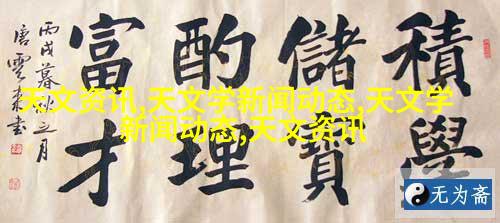 積學
儲寶
酌理
富才
丙戌暮秋之月
唐雲來書
天文资讯,天文学新闻动态,天文学
新闻动态,天文资讯
无为斋